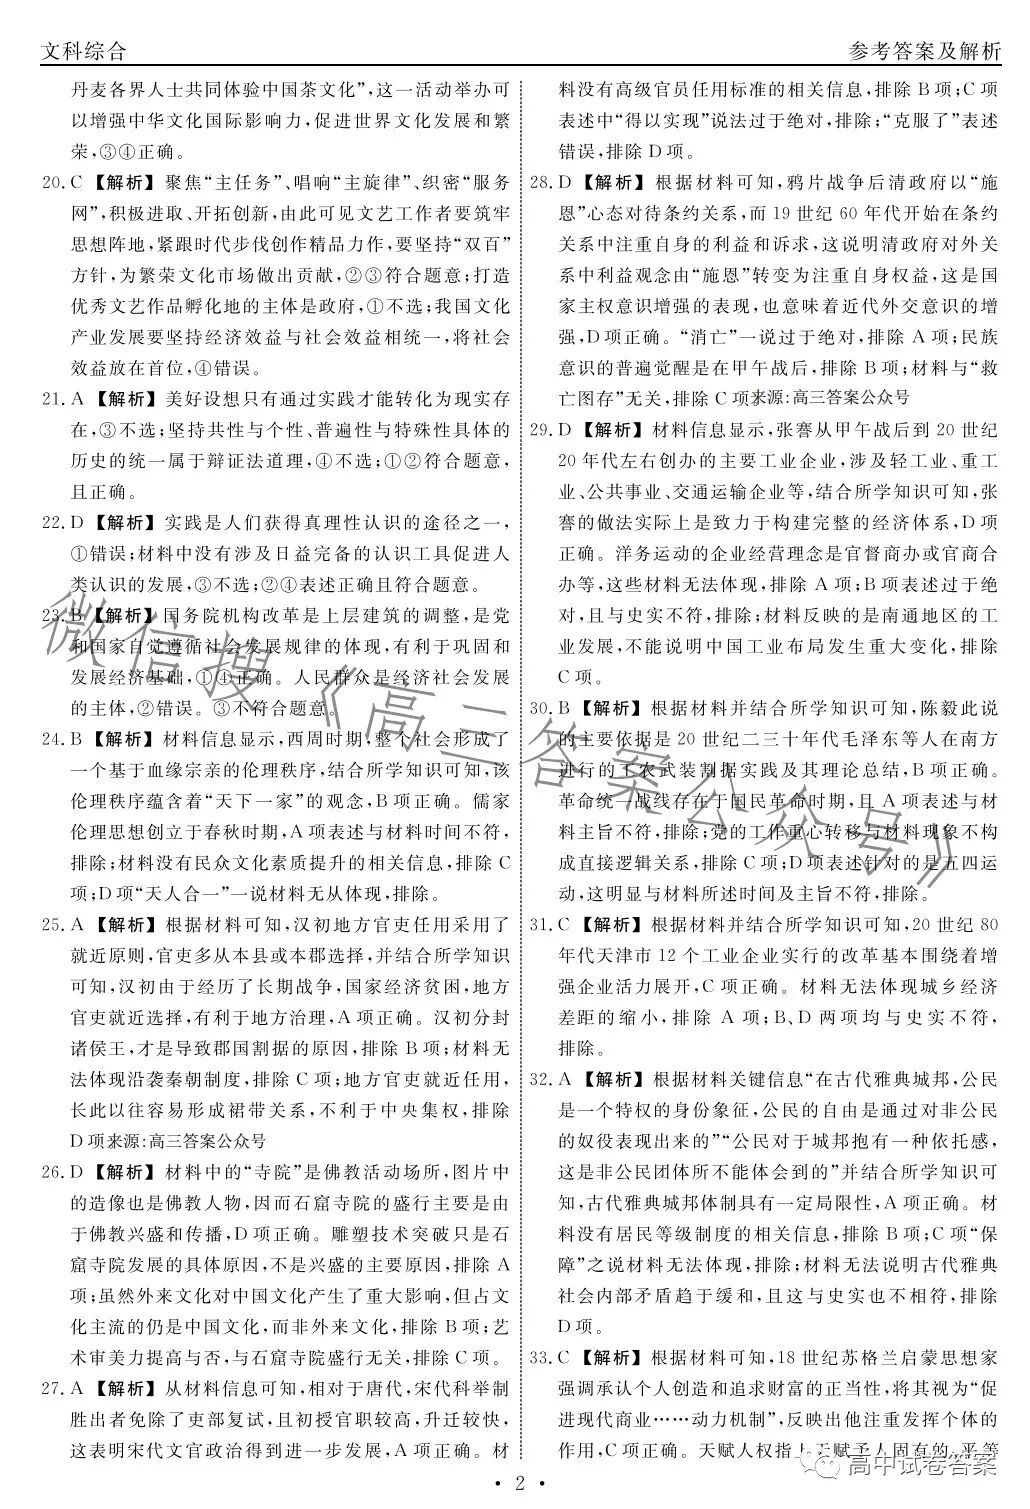 文科综合
参考答案及解析
丹麦各界人士共同体验中国茶文化”,这一活动举办可
以增强中华文化国际影响力,促进世界文化发展和繁
荣,③④正确。
20. C 【解析】聚焦“主任务”、唱响“主旋律”、织密“服务
网”,积极进取、开拓创新,由此可见文艺工作者要筑牢
思想阵地,紧跟时代步伐创作精品力作,要坚持“双百”
方针,为繁荣文化市场做出贡献,②③符合题意;打造
优秀文艺作品孵化地的主体是政府,①不选;我国文化
产业发展要坚持经济效益与社会效益相统一,将社会
效益放在首位,④错误。
21. A 【解析】美好设想只有通过实践才能转化为现实存
在,③不选;坚持共性与个性、普遍性与特殊性具体的
历史的统一属于辩证法道理,④不选;①②符合题意,
且正确。
22. D 【解析】实践是人们获得真理性认识的途径之一,
①错误;材料中没有涉及日益完备的认识工具促进人
类认识的发展,③不选;②④表述正确且符合题意。
23. B 【解析】国务院机构改革是上层建筑的调整,是党
和国家自觉遵循社会发展规律的体现,有利于巩固和
发展经济基础,①④正确。人民群众是经济社会发展
的主体,②错误。③不符合题意。
24. B 【解析】材料信息显示,西周时期,整个社会形成了
一个基于血缘宗亲的伦理秩序,结合所学知识可知,该
伦理秩序蕴含着“天下一家”的观念,B项正确。儒家
伦理思想创立于春秋时期,A项表述与材料时间不符,
排除;材料没有民众文化素质提升的相关信息,排除C
项;D项“天人合一”一说材料无从体现,排除。
25. A 【解析】根据材料可知,汉初地方官吏任用采用了
就近原则,官吏多从本县或本郡选择,并结合所学知识
可知,汉初由于经历了长期战争,国家经济贫困,地方
官吏就近选择,有利于地方治理,A项正确。汉初分封
诸侯王,才是导致郡国割据的原因,排除B项;材料无
法体现沿袭秦朝制度,排除C项;地方官吏就近任用,
长此以往容易形成裙带关系,不利于中央集权,排除
D项来源:高三答案公众号
26. D 【解析】材料中的“寺院”是佛教活动场所,图片中
的造像也是佛教人物,因而石窟寺院的盛行主要是由
于佛教兴盛和传播,D项正确。雕塑技术突破只是石
窟寺院发展的具体原因,不是兴盛的主要原因,排除A
项;虽然外来文化对中国文化产生了重大影响,但占文
化主流的仍是中国文化,而非外来文化,排除B项;艺
术审美力提高与否,与石窟寺院盛行无关,排除C项。
27. A 【解析】从材料信息可知,相对于唐代,宋代科举制
胜出者免除了吏部复试,且初授官职较高,升迁较快,
这表明宋代文官政治得到进一步发展,A项正确。材
料没有高级官员任用标准的相关信息,排除B项;C项
表述中“得以实现”说法过于绝对,排除;“克服了”表述
错误,排除D项。
28. D 【解析】根据材料可知,鸦片战争后清政府以“施
恩”心态对待条约关系,而19世纪60年代开始在条约
关系中注重自身的利益和诉求,这说明清政府对外关
系中利益观念由“施恩”转变为注重自身权益,这是国
家主权意识增强的表现,也意味着近代外交意识的增
强,D项正确。“消亡”一说过于绝对,排除A项;民族
意识的普遍觉醒是在甲午战后,排除B项;材料与“救
亡图存”无关,排除C项来源:高三答案公众号
29. D 【解析】材料信息显示,张謇从甲午战后到20世纪
20年代左右创办的主要工业企业,涉及轻工业、重工
业、公共事业、交通运输企业等,结合所学知识可知,张
謇的做法实际上是致力于构建完整的经济体系,D项
正确。洋务运动的企业经营理念是官督商办或官商合
办等,这些材料无法体现,排除A项;B项表述过于绝
对,且与史实不符,排除;材料反映的是南通地区的工
业发展,不能说明中国工业布局发生重大变化,排除
C项。
30. B 【解析】根据材料并结合所学知识可知,陈毅此说
的主要依据是20世纪二三十年代毛泽东等人在南方
进行的工农武装割据实践及其理论总结,B项正确。
革命统一战线存在于国民革命时期,且A项表述与材
料主旨不符,排除;党的工作重心转移与材料现象不构
成直接逻辑关系,排除C项;D项表述针对的是五四运
动,这明显与材料所述时间及主旨不符,排除。
31. C 【解析】根据材料并结合所学知识可知,20世纪80
年代天津市12个工业企业实行的改革基本围绕着增
强企业活力展开,C项正确。材料无法体现城乡经济
差距的缩小,排除A项;B、D两项均与史实不符,
排除。
32. A 【解析】根据材料关键信息“在古代雅典城邦,公民
是一个特权的身份象征,公民的自由是通过对非公民
的奴役表现出来的”“公民对于城邦抱有一种依托感,
这是非公民团体所不能体会到的”并结合所学知识可
知,古代雅典城邦体制具有一定局限性,A项正确。材
料没有居民等级制度的相关信息,排除B项;C项“保
障”之说材料无法体现,排除;材料无法说明古代雅典
社会内部矛盾趋于缓和,且这与史实也不相符,排除
D项。
33. C 【解析】根据材料可知,18世纪苏格兰启蒙思想家
强调承认个人创造和追求财富的正当性,将其视为“促
进现代商业……动力机制”,反映出他注重发挥个体的
作用,C项正确。天赋人权指上天赋予人固有的、平等
微信搜《高三答案公众号》
高中试卷答案
• 2 •